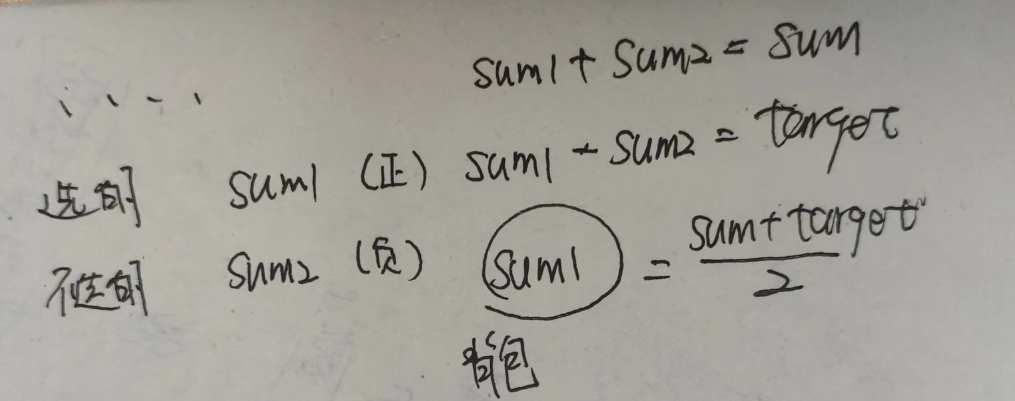 sum1 + sum2 = sum
选的 sum1 (正) sum1 - sum2 = target
不选的 sum2 (负) sum1 = sum + target / 2
背包